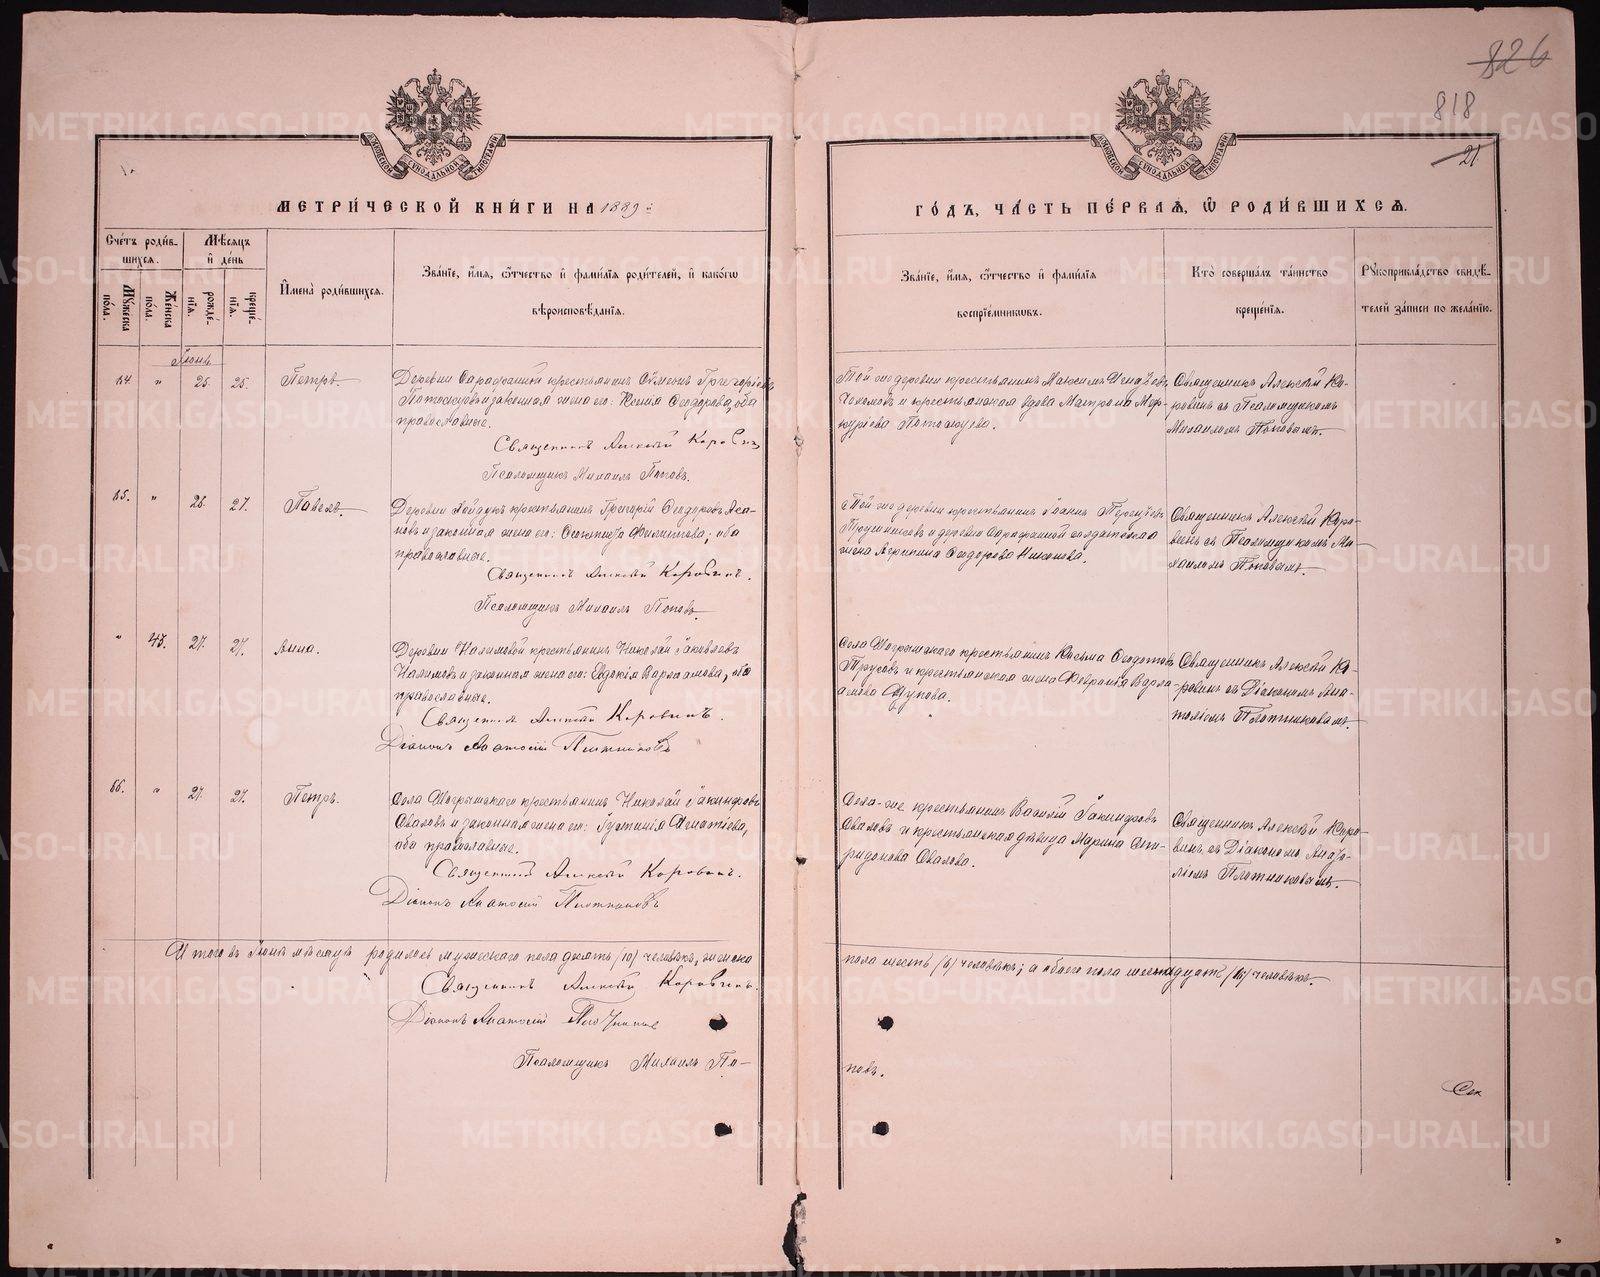 826
818
21
МОСКОВСКОЙ СѴНОДАЛЬНОЙ ТИПОГРАФІИ
МОСКОВСКОЙ СѴНОДАЛЬНОЙ ТИПОГРАФІИ
МЕТРИ́ЧЕСКОЙ КНИ́ГИ НА 1889 й
ГО́ДЪ, ЧА́СТЬ ПЕ́РВАѦ, Ѡ РОДИ́ВШИХСѦ.
Сче́тъ роди́вшихсѧ.
Мѣ́сѧцъ и҆ де́нь
Му́жеска по́ла.
Же́нска по́ла.
рожде́нїѧ.
креще́нїѧ.
И҆мена̀ роди́вшихсѧ.
Зва́нїе, и҆́мѧ, ѻ҆́тчество и҆ фами́лїѧ роди́телей, и҆ како́гѡ вѣроисповѣ́данїѧ.
Зва́нїе, и҆́мѧ, ѻ҆́тчество и҆ фами́лїѧ воспрїе́мникѡвъ.
Кто̀ соверша́лъ та́инство креще́нїѧ.
Рꙋкоприкла́дство свидѣ́телей за́писи по жела́нїю.
Іюнь
64. " 25. 25. Петръ.
Деревни Сарафановой крестьянинъ Симеонъ Григоріевъ
Потоскуевъ и законная жена его: Ксенія Ѳеодорова, оба
православные.
Священникъ Алексѣй Коровинъ
Псаломщикъ Михаилъ Поповъ.
Той-же деревни крестьянинъ Максимъ
и крестьянская вдова Матрона Мер-
куріева Потоскуева.
Священникъ Алексѣй Ко-
ровинъ съ Псаломщикомъ
Михаиломъ Поповымъ.
65. " 26. 27. Павелъ.
Деревни крестьянинъ Григорій Ѳеодоровъ
и законная жена его: Филиппова; оба
православные.
Священникъ Алексѣй Коровинъ.
Псаломщикъ Михаилъ Поповъ
Той-же деревни крестьянинъ
и деревни солдатская
жена Агрипина Ѳеодорова
Священникъ Алексѣй Коро-
винъ съ Псаломщикомъ Ми-
хаиломъ Поповымъ.
" 45. 27. 27. Анна.
Деревни Налимовой крестьянинъ Николай Іаковлевъ
Налимовъ и законная жена его: Евдокія Варлаамова, оба
православные.
Священникъ Алексѣй Коровинъ.
Діаконъ Анатолій Плотниковъ
Села крестьянинъ Косьма Ѳедотовъ
Трусовъ и крестьянская жена Февронія Варла-
амова Щупова.
Священникъ Алексѣй Ко-
ровинъ съ Діакономъ Ана-
толіемъ Плотниковымъ.
66. " 27. 27. Петръ.
Села крестьянинъ Николай Іакинфовъ
Оваловъ и законная жена его: Іустинія Игнатіева,
оба православные.
Священникъ Алексѣй Коровинъ.
Діаконъ Анатолій Плотниковъ
Села-же крестьянинъ Василій Іакинфовъ
Оваловъ и крестьянская дѣвица Марина Спи-
ридонова Овалова.
Священникъ Алексѣй Коро-
винъ съ Діакономъ Анато-
ліемъ Плотниковымъ.
Итого въ Іюнѣ мѣсяцѣ родилось мужескаго пола десять (10) человѣкъ, женска
пола шесть (6) человѣкъ; а обоего пола шестнадцать (16) человѣкъ.
Священникъ Алексѣй Коровинъ.
Діаконъ Анатолій Плотниковъ
Псаломщикъ Михаилъ По-
повъ.
Сек
METRIKI.GASO-URAL.RU